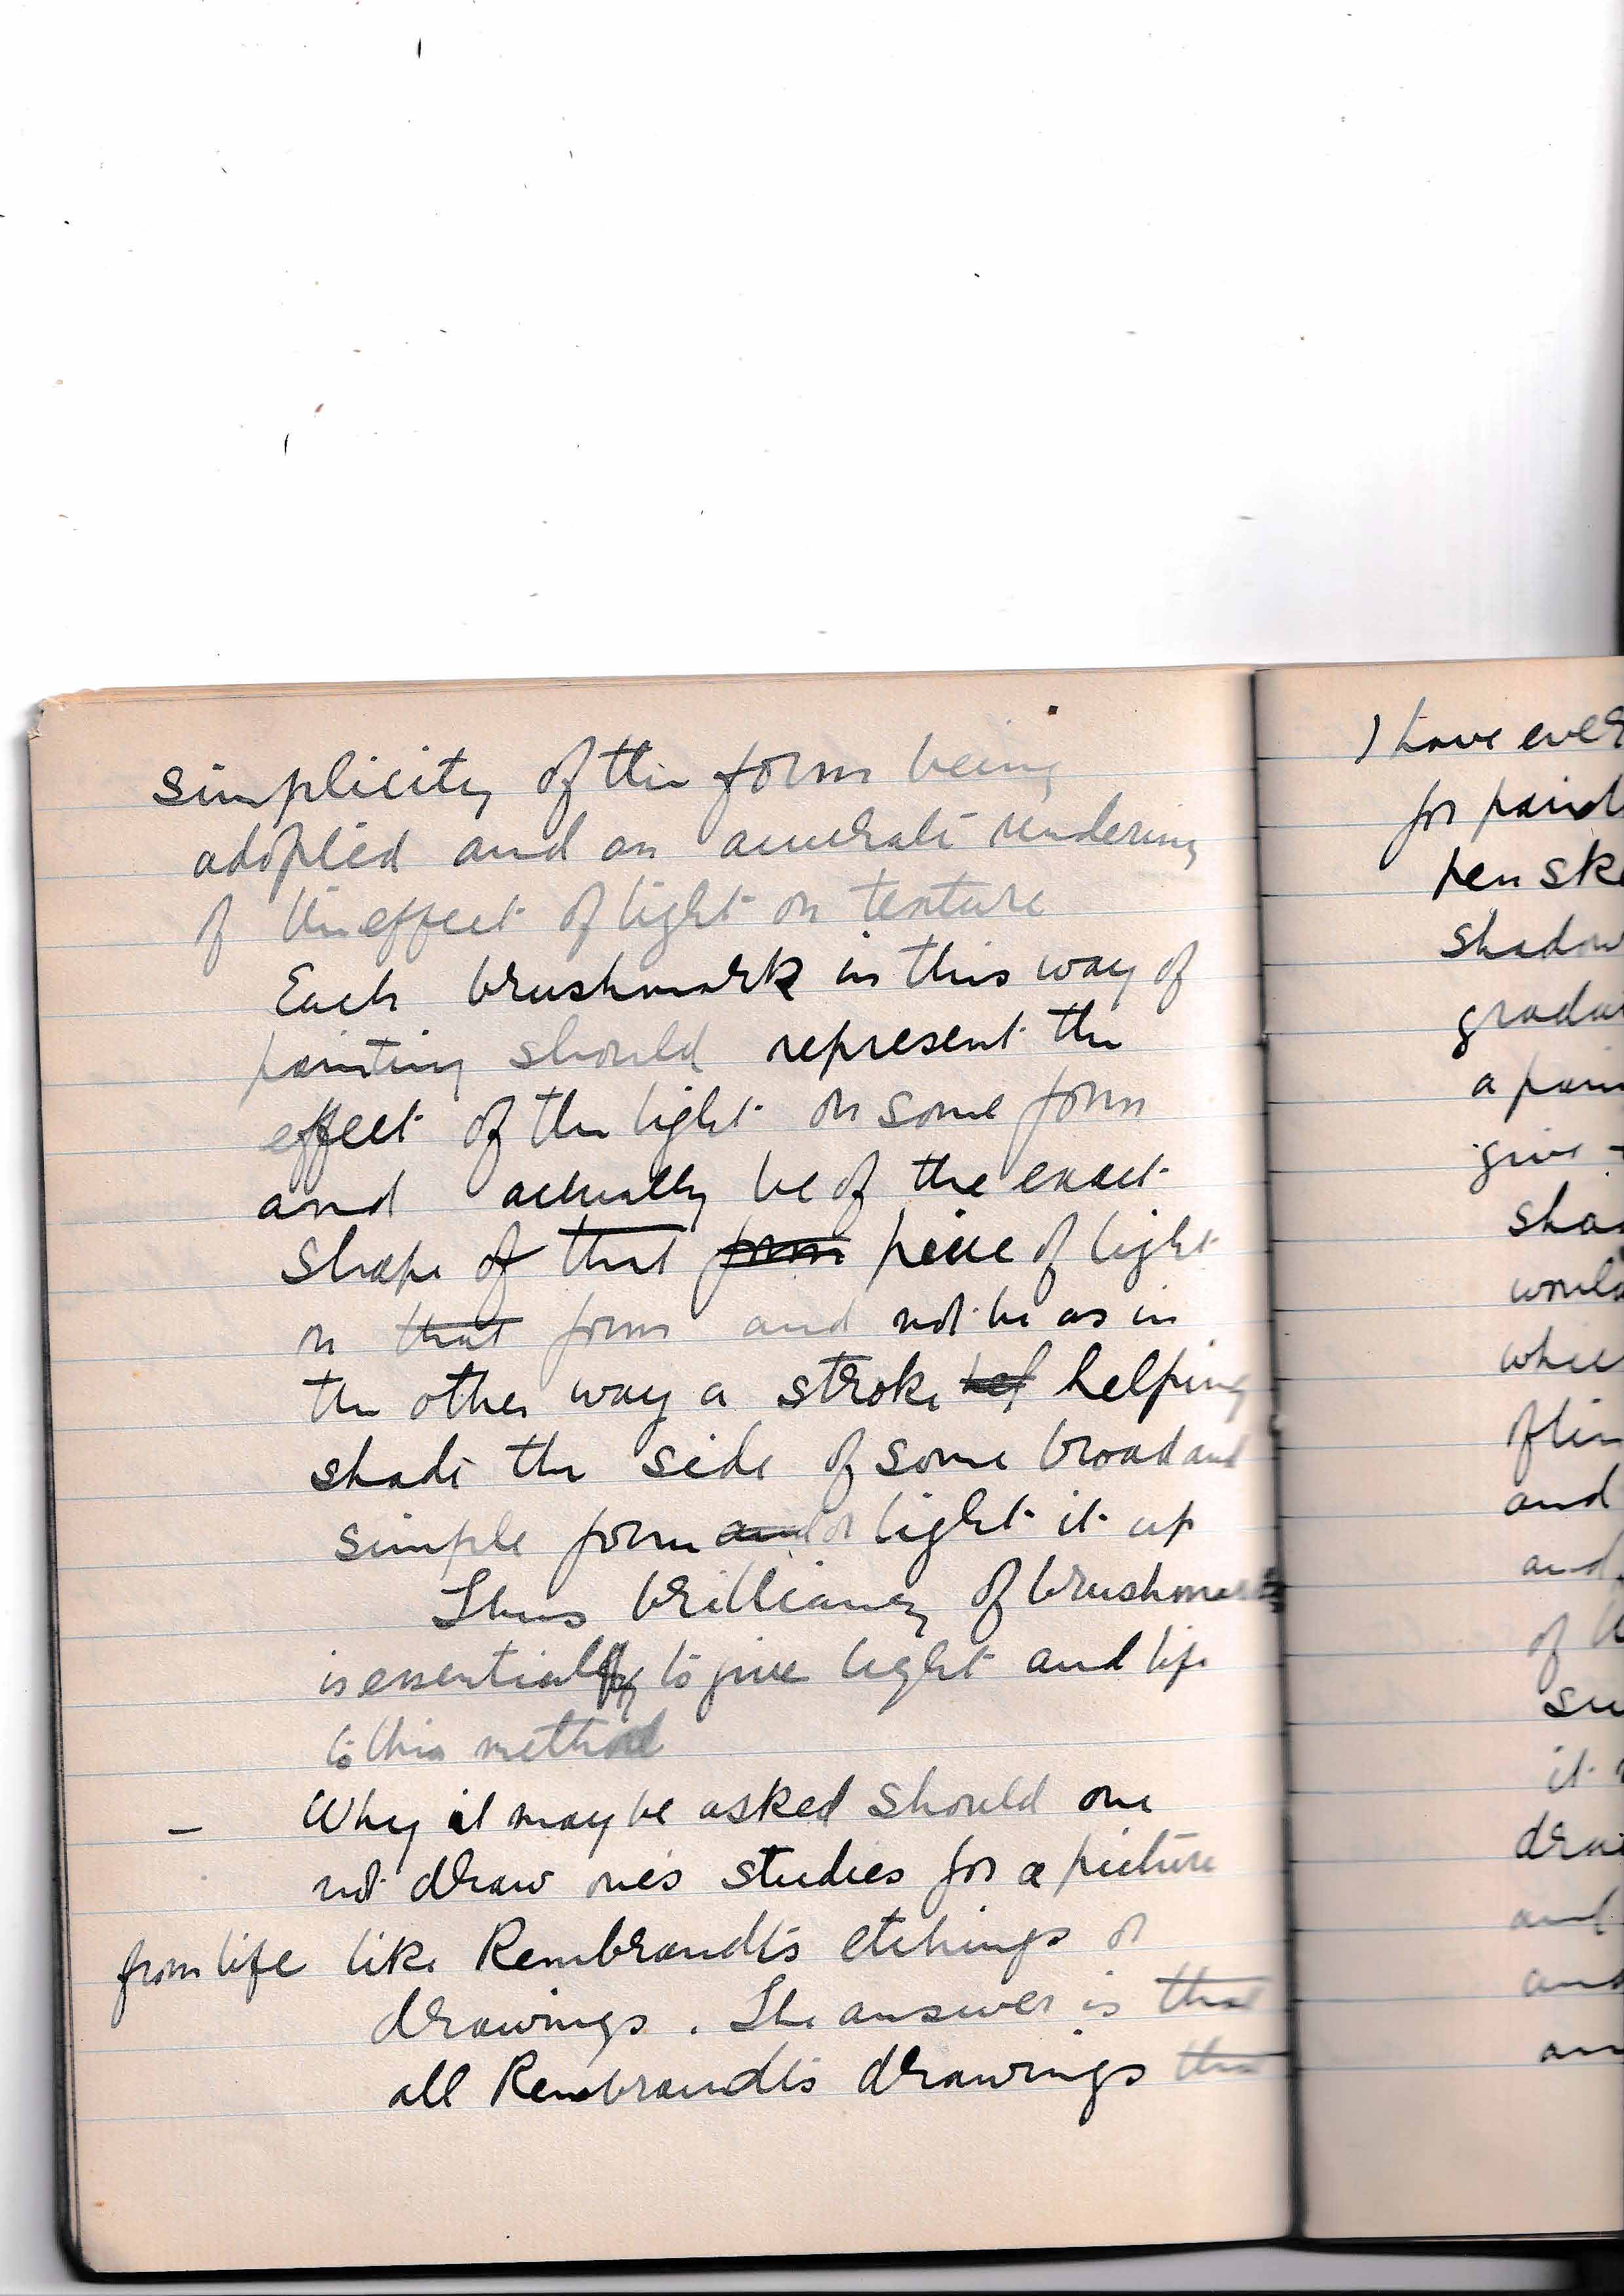 simplicity of the form being
adopted and an accurate rendering
of the effect of light on texture
Each brushmark in this way of
painting should represent the
effect of the light on some form
and actually be of the exact
shape of that form piece of light
on that form and not be as in
the other way a stroke hel helping
shade the side of some broad and
simple form and or light it up
Thus brilliancy of brushmarks
is essential to give light and life
to this method
– Why it may be asked should one
not draw one's studies for a picture
from life like Rembrandt's etchings or
drawings. The answer is that
all Rembrandt's drawings that
I have ever
for paint
pen ske
shadow
gradat
a pain
give
sha
would
whi
of lin
and
and
of
su
it
dra
and
and
an